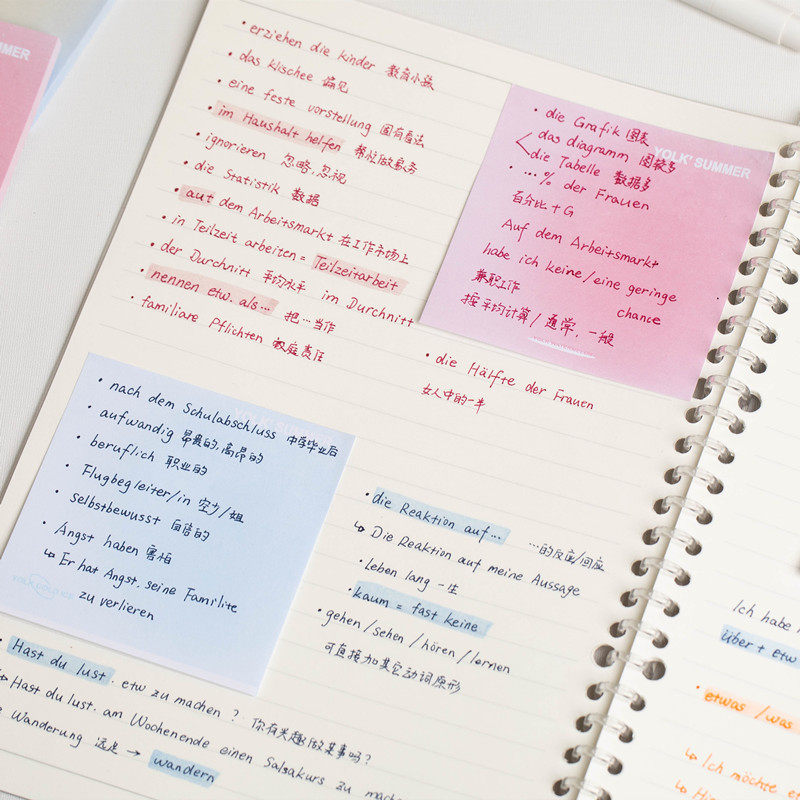 MER
• erziehen die kinder 教育小孩
• das klischee 偏见
• eine feste vorstellung 固有看法
• im Haushalt helfen 帮忙做家务
• ignorieren 忽略,忽视
• die Statistik 数据
• aut dem Arbeitsmarkt 在工作市场上
• in Teilzeit arbeiten = Teilzeitarbeit
• der Durchnitt 平均水平 im Durchnitt
• nennen etw. als... 把...当作
• familiare Pflichten 家庭责任
YOLK' SUMMER
• die Grafik 图表
das diagramm 图较多
die Tabelle 数据多
• ...% der Frauen
百分比+G
Auf dem Arbeitsmarkt
habe ich keine/eine geringe
chance
兼职工作
按平均计算/通常,一般
• die Hälfte der Frauen
女人中的一半
• nach dem Schulabschluss 中学毕业后
• aufwandig 昂贵的,高昂的
• beruflich 职业的
• Flugbegleiter/in 空少/姐
• selbstbewusst 自信的
• Angst haben 害怕
↳ Er hat Angst, seine Familite
zu verlieren
• die Reaktion auf... ...的反应/回应
↳ Die Reaktion auf meine Aussage
• Leben lang 一生
• kaum = fast keine
• gehen/sehen/hören/lernen
可直接加其它动词原形
Hast du lust, etw zu machen? 你有兴趣做某事吗?
↳ Hast du lust, am Wochenende einen Salsakurs zu mach
Wanderung 远足 → wandern
Ich habe
über + etw
• etwas/was
↳ Ich möchte e